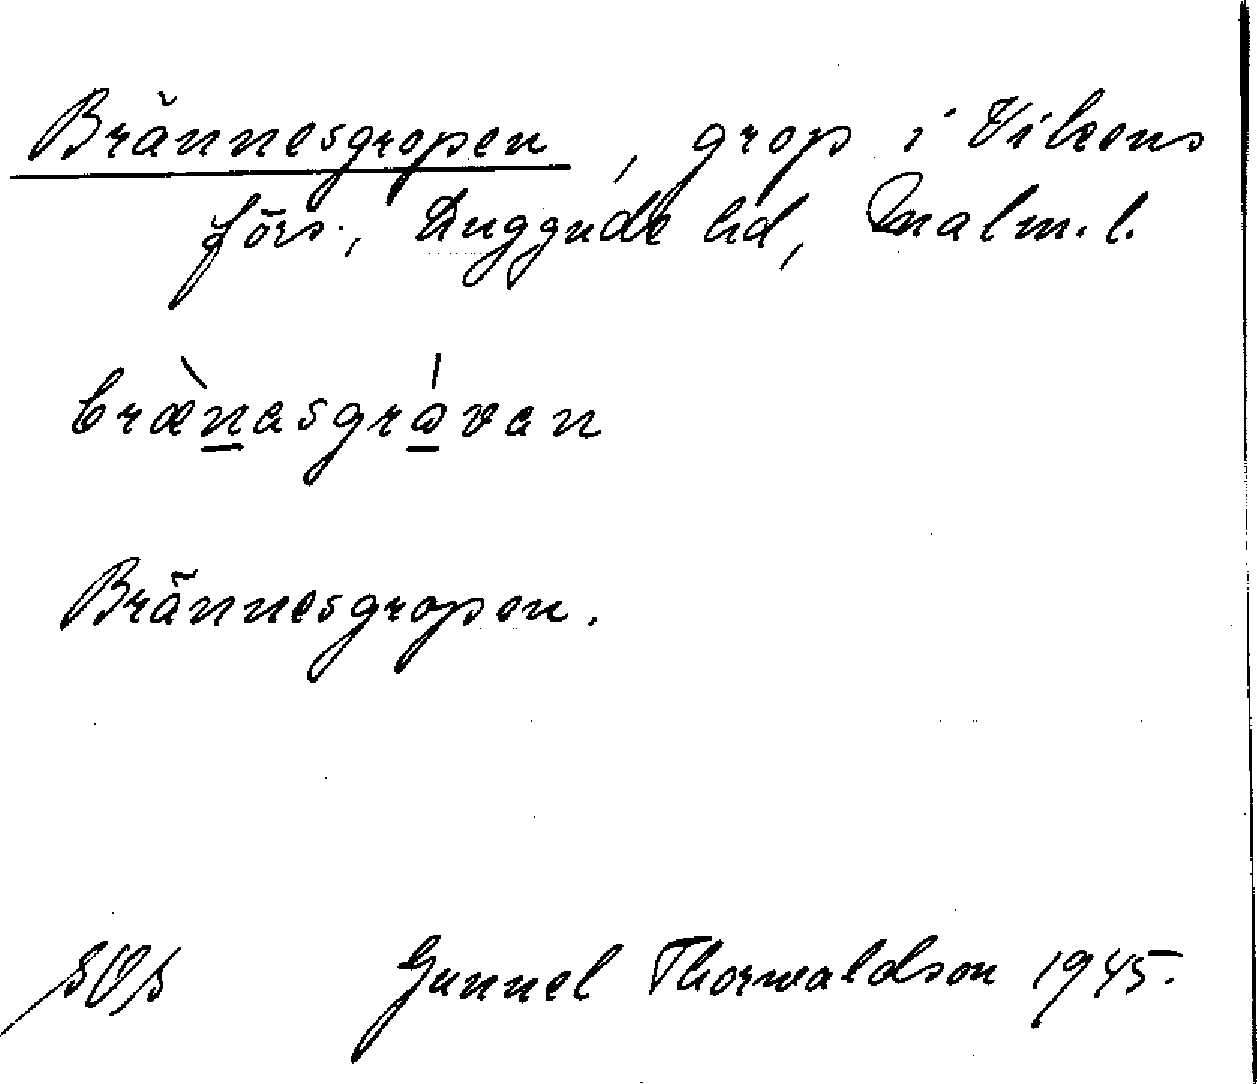 Brännesgropen, grop i Vikens
förs., Luggude hd, Malm. l.
brænasgråvan
Brännesgropen.
Gunnel Thorwaldson 1945.